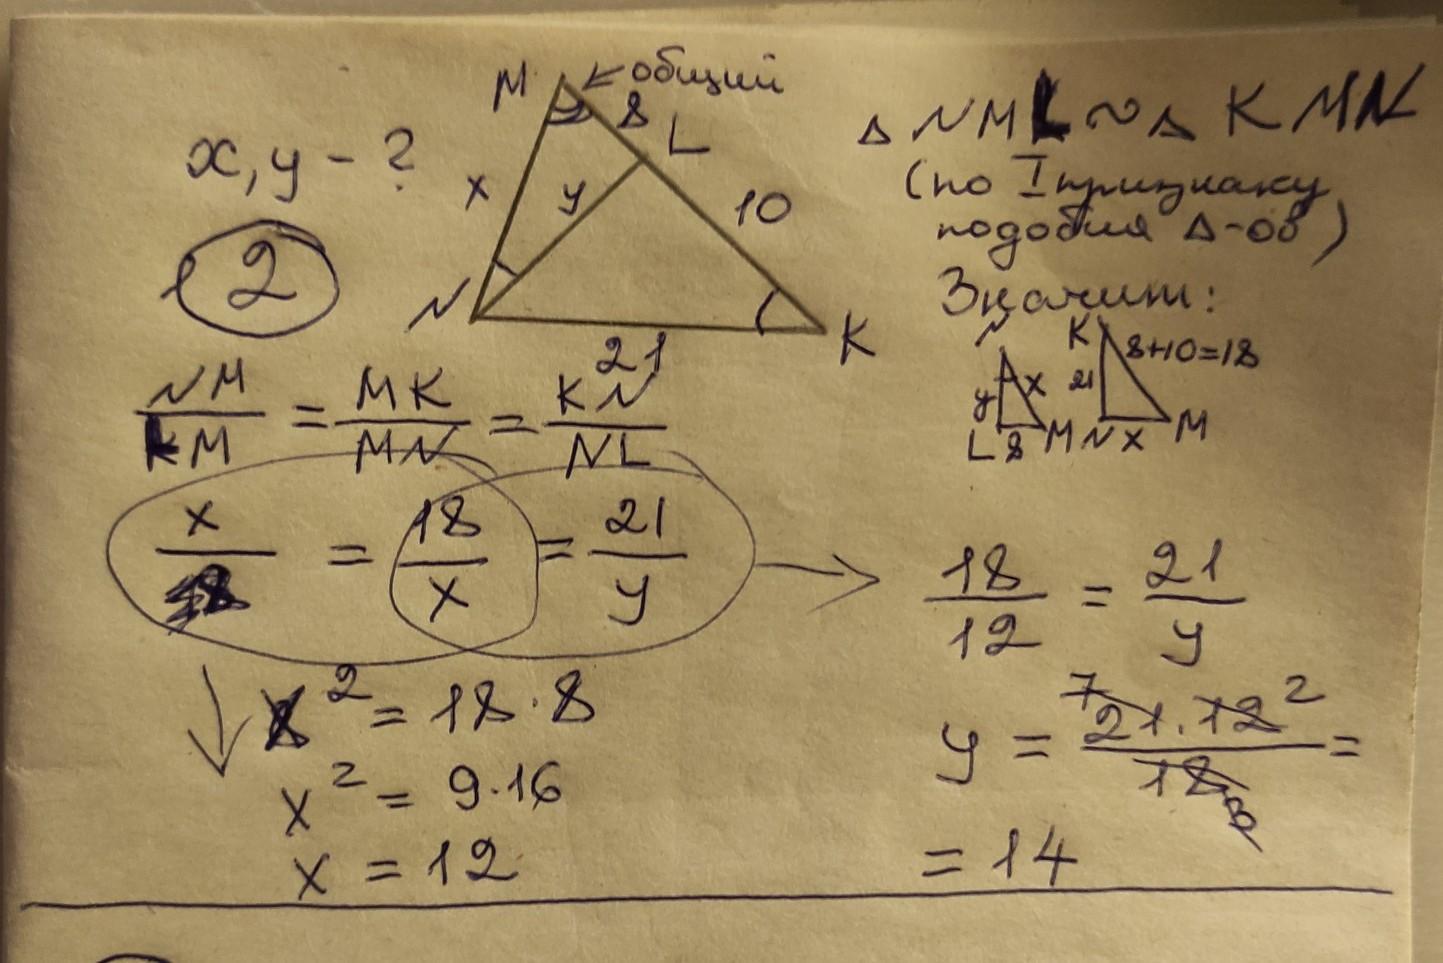 x, y - ?
2
M ← общий
8
L
x
y
10
N
21
K
△ NML ~ △ KMN
(по I признаку
подобия △-ов)
Значит:
N
y
x
L 8 M
K
8+10=18
21
N x M
NM/LM = MK/MN = KN/NL
x/8 = 18/x = 21/y
x² = 18·8
x² = 9·16
x = 12
18/12 = 21/y
y = 21·12/18 =
7
2
3
= 14